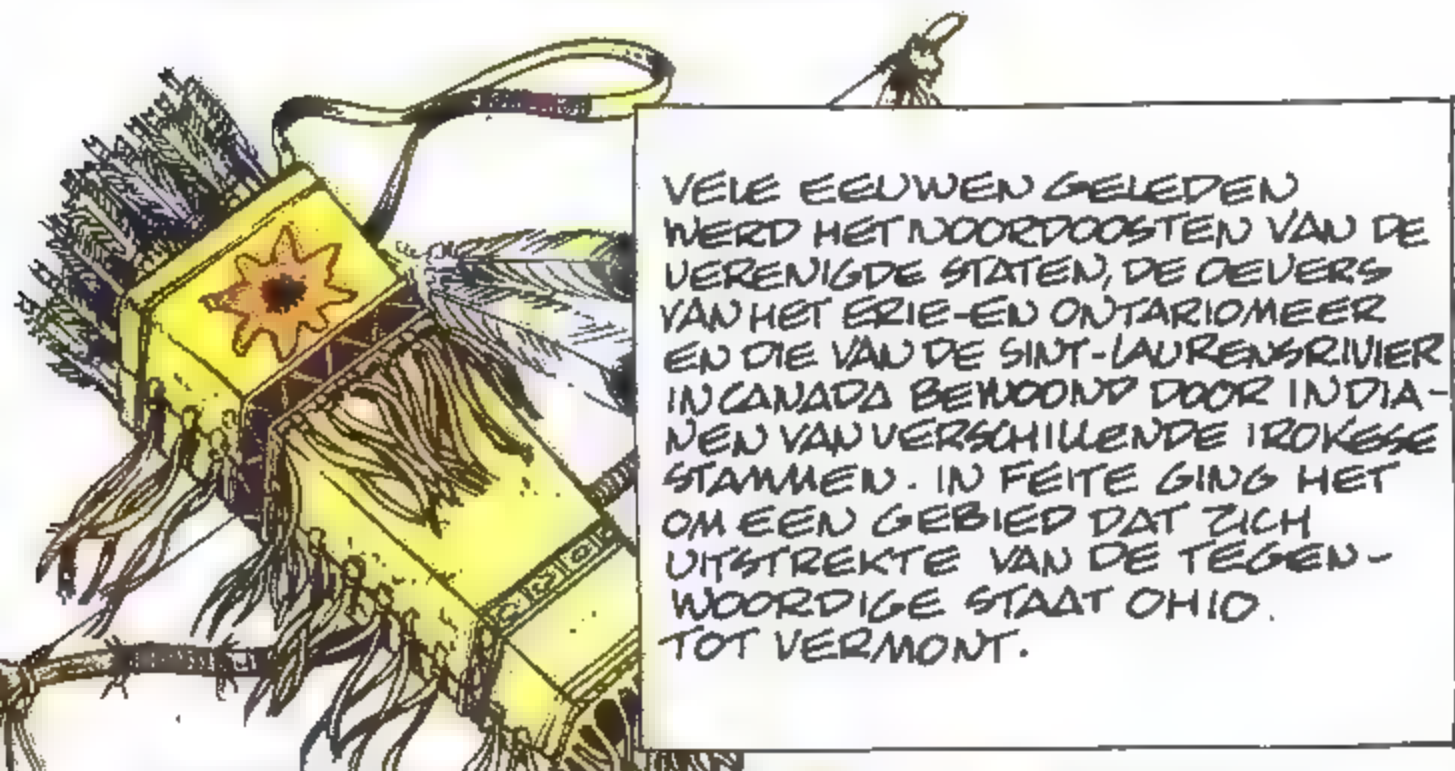 VELE EEUWEN GELEDEN
WERD HET NOORDOOSTEN VAN DE
VERENIGDE STATEN, DE OEVERS
VAN HET ERIE-EN ONTARIOMEER
EN DIE VAN DE SINT-LAURENSRIVIER
IN CANADA BEWOOND DOOR INDIA-
NEN VAN VERSCHILLENDE IROKESE
STAMMEN. IN FEITE GING HET
OM EEN GEBIED DAT ZICH
UITSTREKTE VAN DE TEGEN-
WOORDIGE STAAT OHIO.
TOT VERMONT.